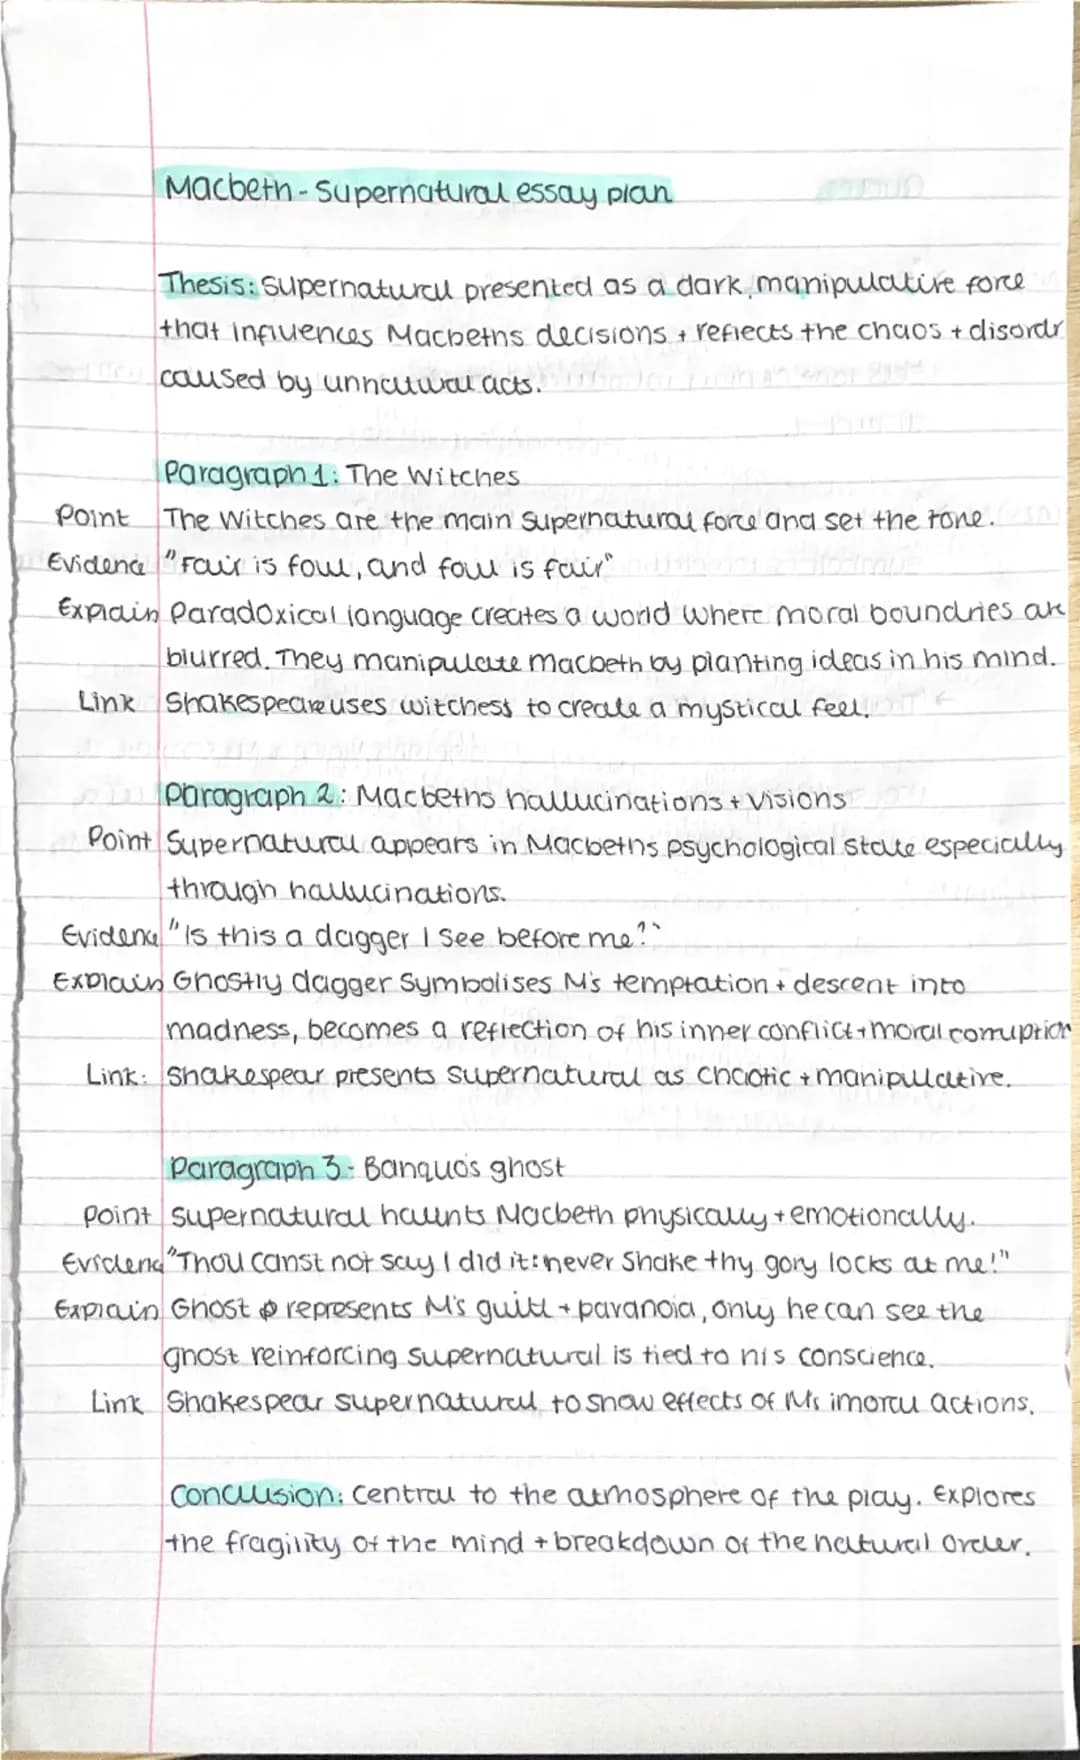 Macbeth - Supernatural essay plan
Thesis: Supernatural presented as a dark, manipulative force
that influences Macbeths decisions + reflects the chaos + disordr
caused by unnatural acts.
Paragraph 1: The Witches
Point The Witches are the main supernatural force and set the tone.
Evidence "Fair is foul, and foul is fair"
Explain Paradoxical language creates a world where moral boundries are
blurred. They manipulate macbeth by planting ideas in his mind.
Link Shakespeare uses witchess to create a mystical feel.
Paragraph 2: Macbeths hallucinations + visions
Point Supernatural appears in Macbeths psychological state especially
through hallucinations.
Evidence "Is this a dagger I see before me?"
Explain Ghostly dagger symbolises M's temptation + descent into
madness, becomes a reflection of his inner conflict + moral corruption
Link: Shakespear presents supernatural as chaotic + manipulative.
Paragraph 3 - Banquo's ghost
Point supernatural haunts Macbeth physically + emotionally.
Evidence "Thou canst not say I did it: never shake thy gory locks at me!"
Explain Ghost represents M's guilt + paranoia, only he can see the
ghost reinforcing supernatural is tied to his conscience.
Link Shakespear supernatural to show effects of Ms imoral actions.
Conclusion: Central to the atmosphere of the play. Explores
the fragility of the mind + breakdown of the natural order.